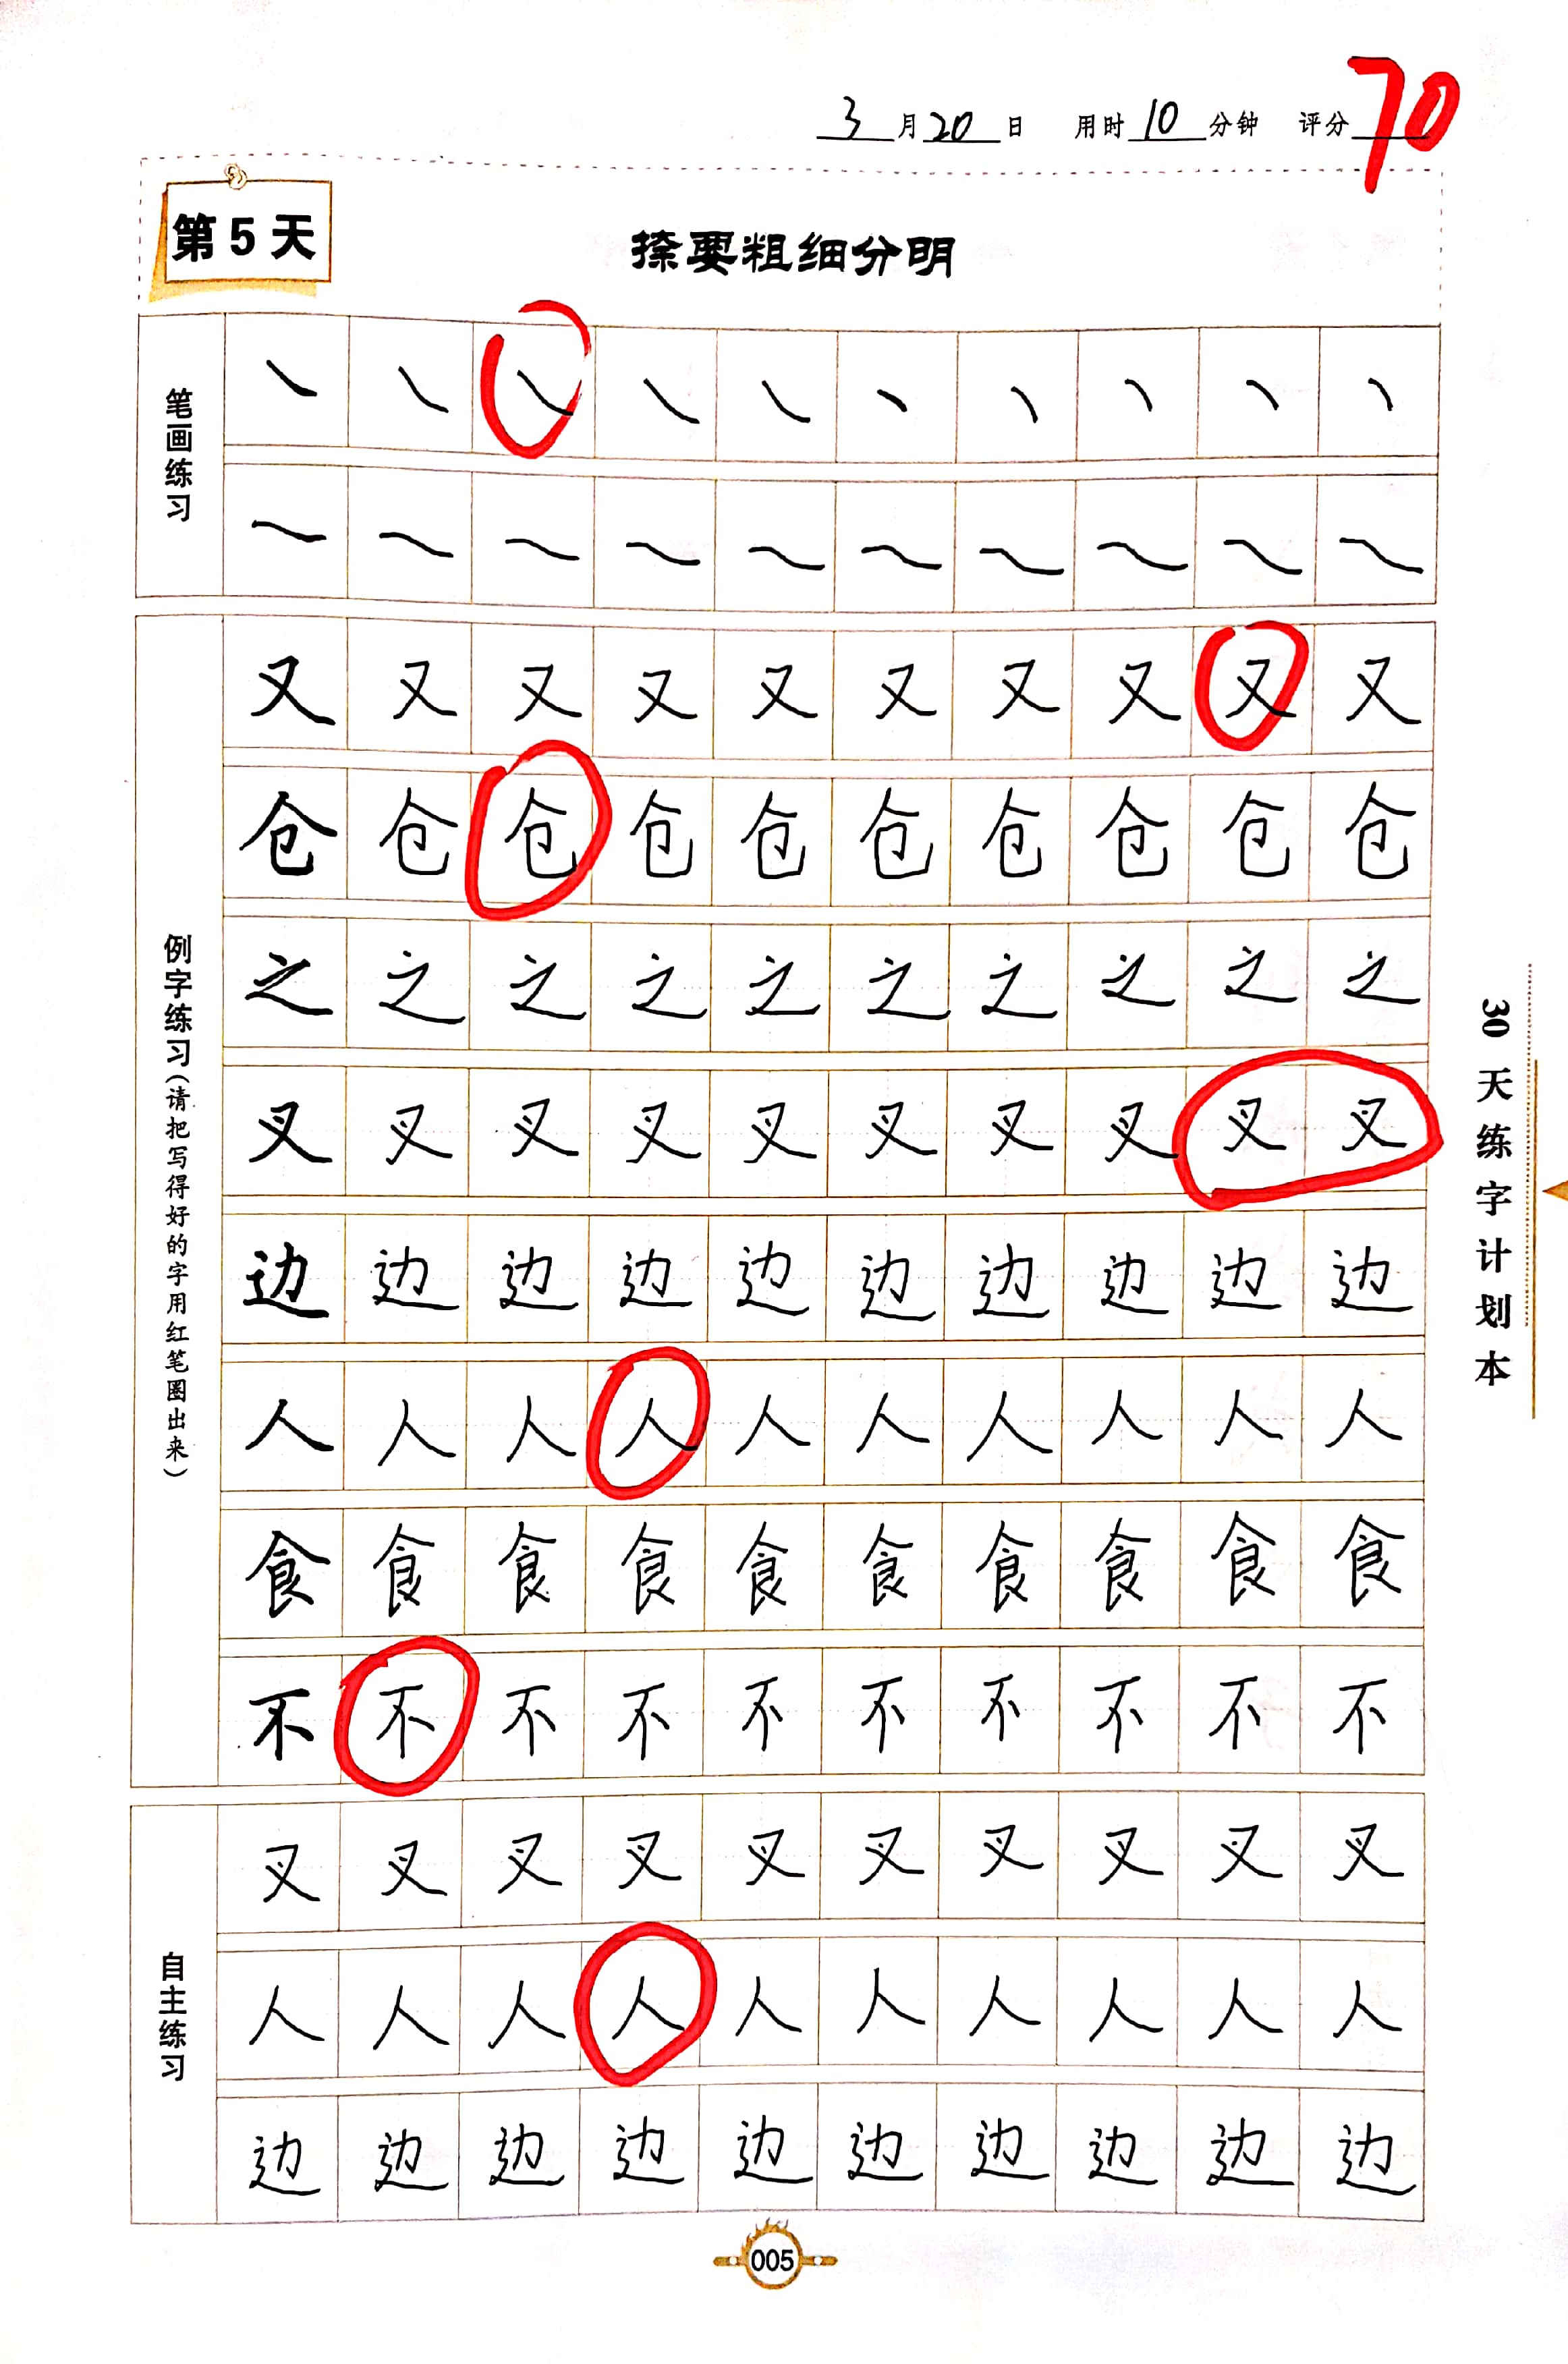 3月20日 用时10分钟 评分70
第5天
捺要粗细分明
笔画练习
例字练习(请把写得好的字用红笔圈出来)
又又又又又又又又又又
仓仓仓仓仓仓仓仓仓仓
之之之之之之之之之之
叉叉叉叉叉叉叉叉叉叉
边边边边边边边边边边
人人人人人人人人人人
食食食食食食食食食食
不不不不不不不不不不
自主练习
叉叉叉叉叉叉叉叉叉叉
人人人人人人人人人人
边边边边边边边边边边
30天练字计划本
005